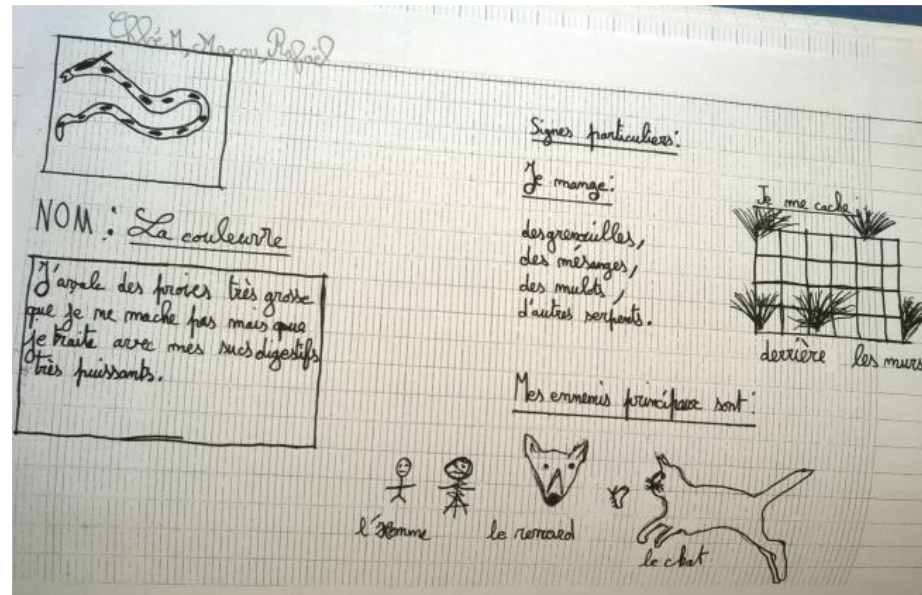 Chloé M, Manou, Rafaël
NOM : La couleuvre
J'avale des proies très grosse
que je ne mache pas mais que
je traite avec mes sucs digestifs
très puissants.
Signes particuliers:
Je mange:
des grenouilles,
des mésanges,
des mulots,
d'autres serpents.
Je me cache:
derrière les murs
Mes ennemis principaux sont:
l'Homme
le renard
le chat